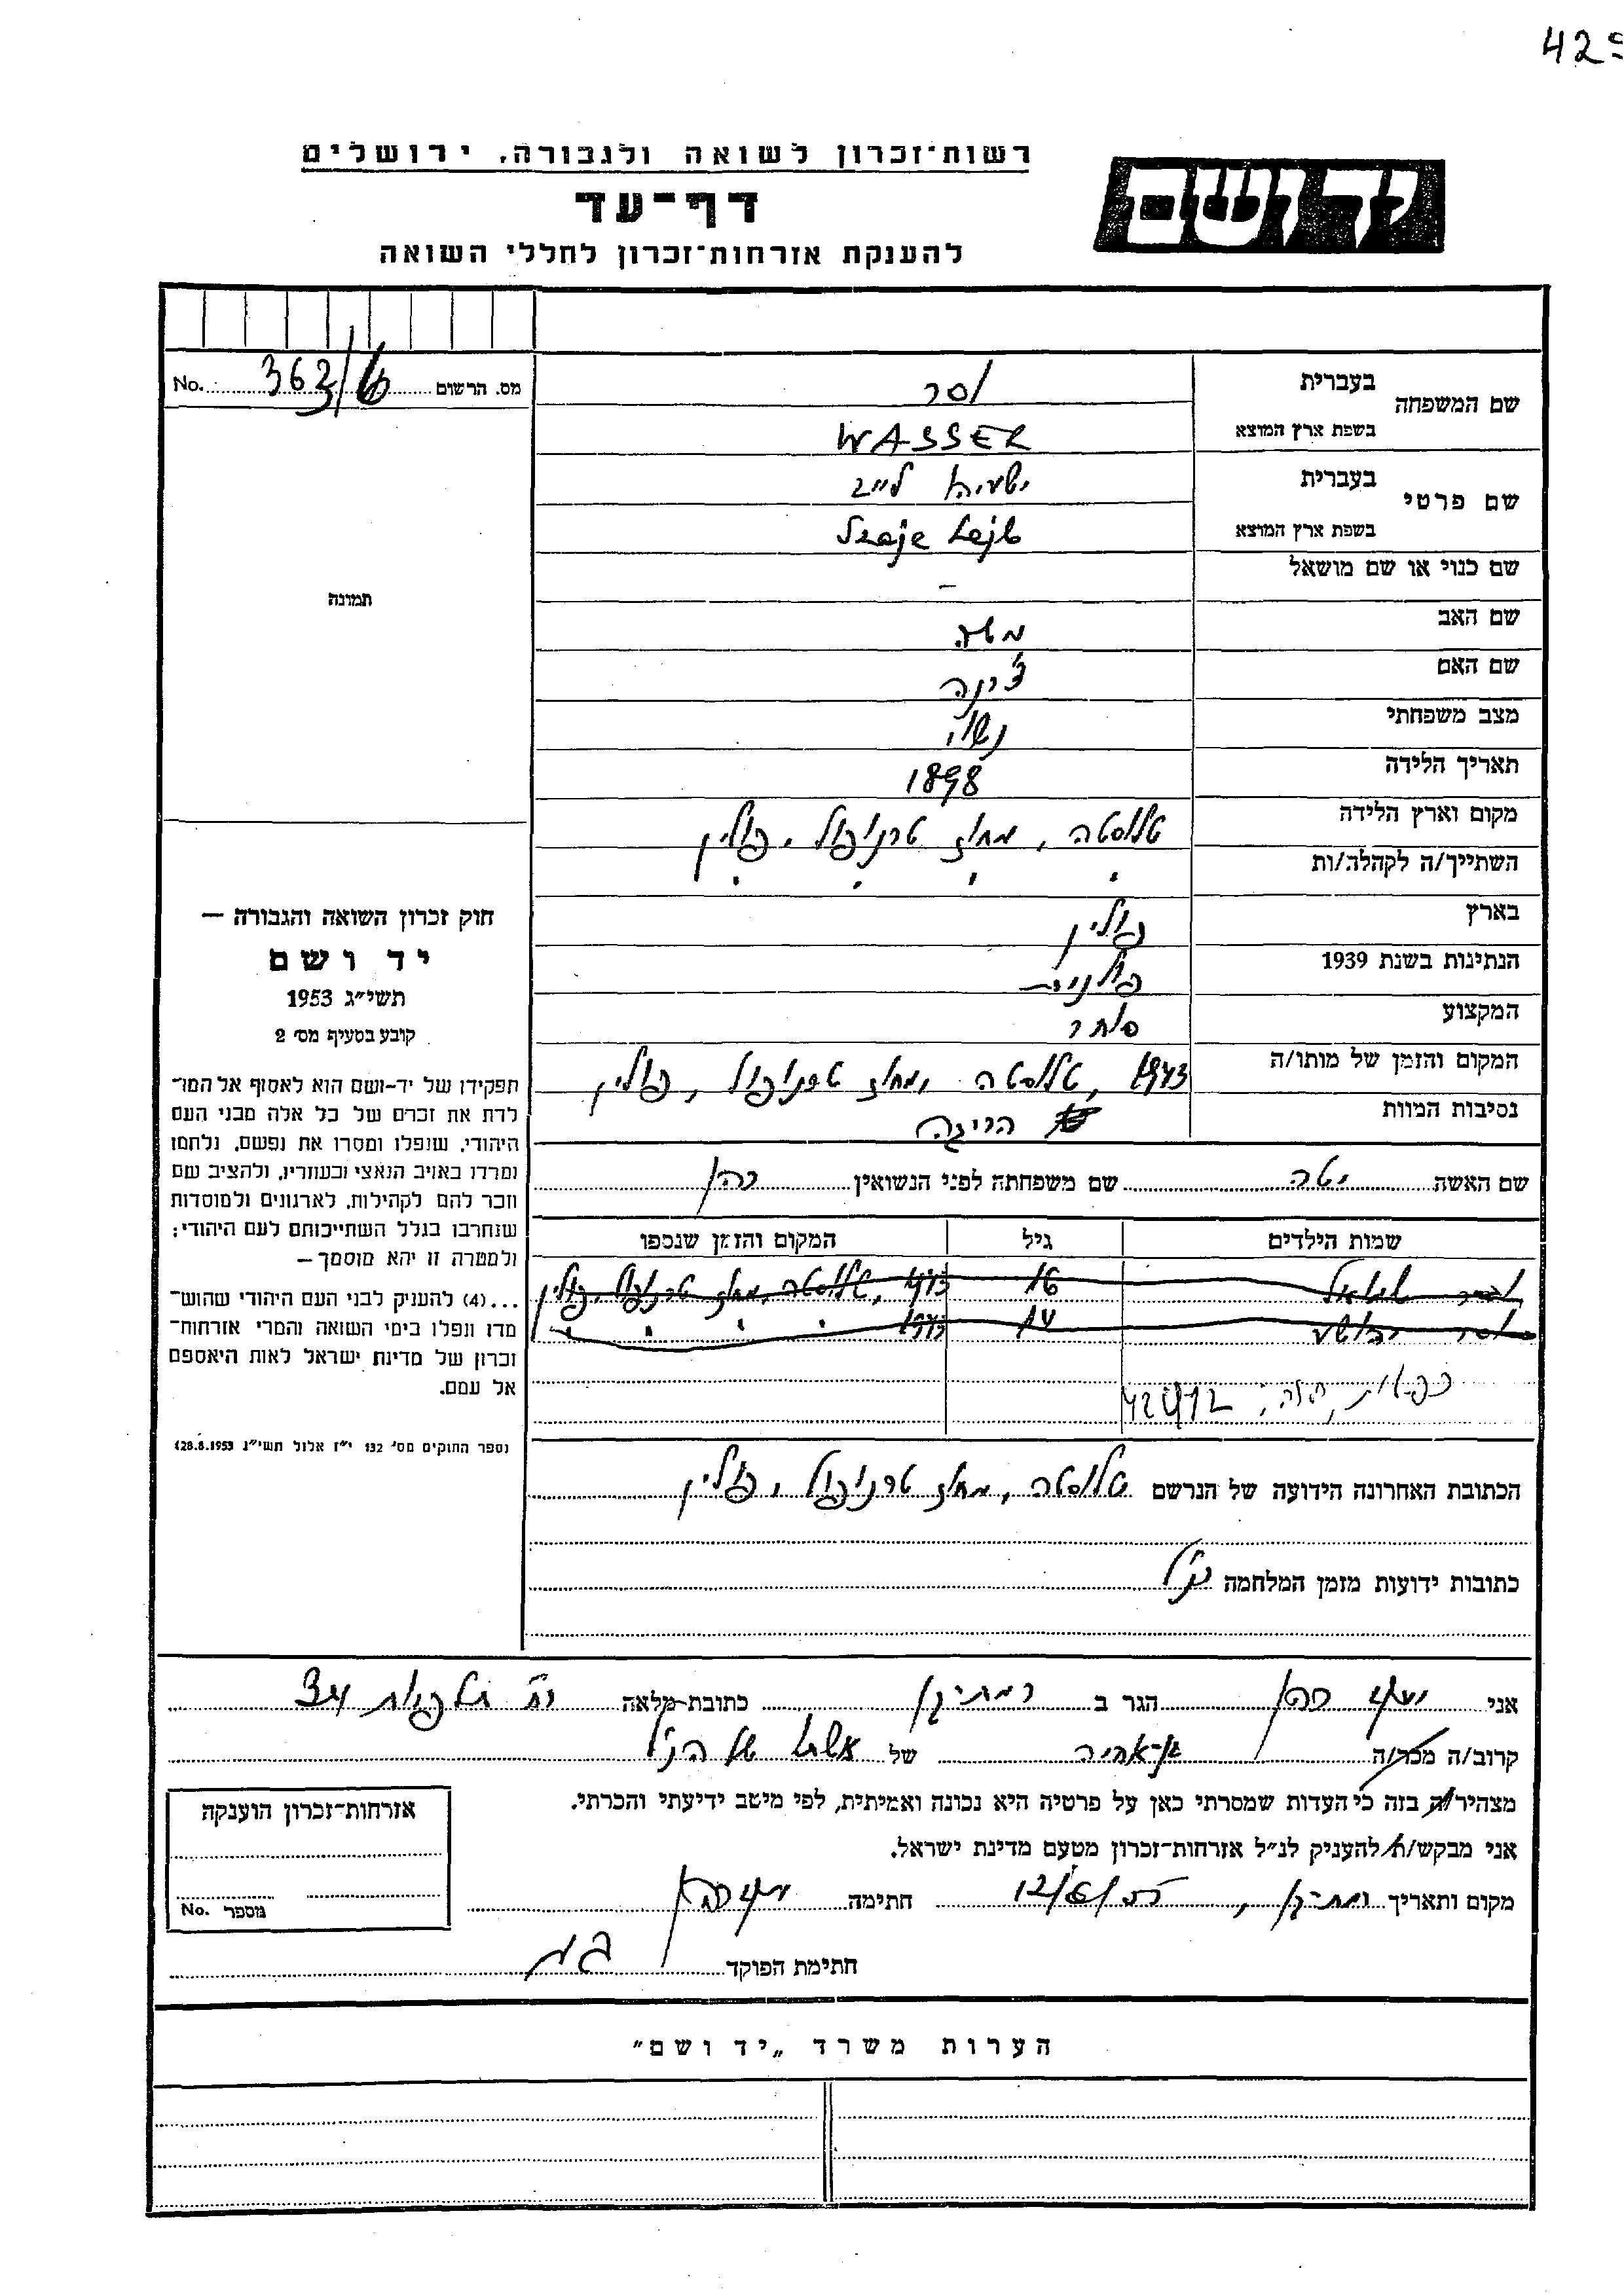 רשות־זכרון לשואה ולגבורה, ירושלים
דף־עד
להענקת אזרחות־זכרון לחללי השואה
יד ושם
מס. הרשום 363/ No.
שם המשפחה בעברית וסר
בשפת ארץ המוצא WASSER
שם פרטי בעברית ישעיהו לייב
בשפת ארץ המוצא Szaje Lejb
שם כנוי או שם מושאל –
שם האב משה
שם האם
מצב משפחתי נשוי
תאריך הלידה 1898
מקום וארץ הלידה טלוסטה, מחוז טרנופול, פולין
השתייך/ה לקהלה/ות " " " "
בארץ פולין
הנתינות בשנת 1939 פולנית
המקצוע סוחר
המקום והזמן של מותו/ה 1943, טלוסטה, מחוז טרנופול, פולין
נסיבות המוות הריגה
שם האשה יטה שם משפחתה לפני הנשואין כהן
שמות הילדים גיל המקום והזמן שנספו
וסר שמואל 16 1943, טלוסטה, מחוז טרנופול, פולין
וסר יהושע 14 1943 " " " "
42412
הכתובת האחרונה הידועה של הנרשם טלוסטה, מחוז טרנופול, פולין
כתובות ידועות מזמן המלחמה כנ"ל
תמונה
חוק זכרון השואה והגבורה —
יד ושם
תשי״ג 1953
קובע בסעיף מס׳ 2
תפקידו של יד-ושם הוא לאסוף אל המו־
לדת את זכרם של כל אלה מבני העם
היהודי, שנפלו ומסרו את נפשם, נלחמו
ומרדו באויב הנאצי ובעוזריו, ולהציב שם
וזכר להם לקהילות, לארגונים ולמוסדות
שנחרבו בגלל השתייכותם לעם היהודי;
ולמטרה זו יהא מוסמך —
...(4) להעניק לבני העם היהודי שהוש־
מדו ונפלו בימי השואה והמרי אזרחות־
זכרון של מדינת ישראל לאות היאספם
אל עמם.
(ספר החוקים מס׳ 132 י״ז אלול תשי״ג 28.8.1953)
אני כהן הגר ב רמת-גן כתובת מלאה 34
קרוב/ה מכר/ה של אשתו של הנ"ל
מצהיר/ה בזה כי העדות שמסרתי כאן על פרטיה היא נכונה ואמיתית, לפי מיטב ידיעתי והכרתי.
אני מבקש/ת להעניק לנ״ל אזרחות־זכרון מטעם מדינת ישראל.
מקום ותאריך רמת-גן, 12/6/55 חתימה
חתימת הפוקד
אזרחות־זכרון הוענקה
מספר No.
הערות משרד „יד ושם״